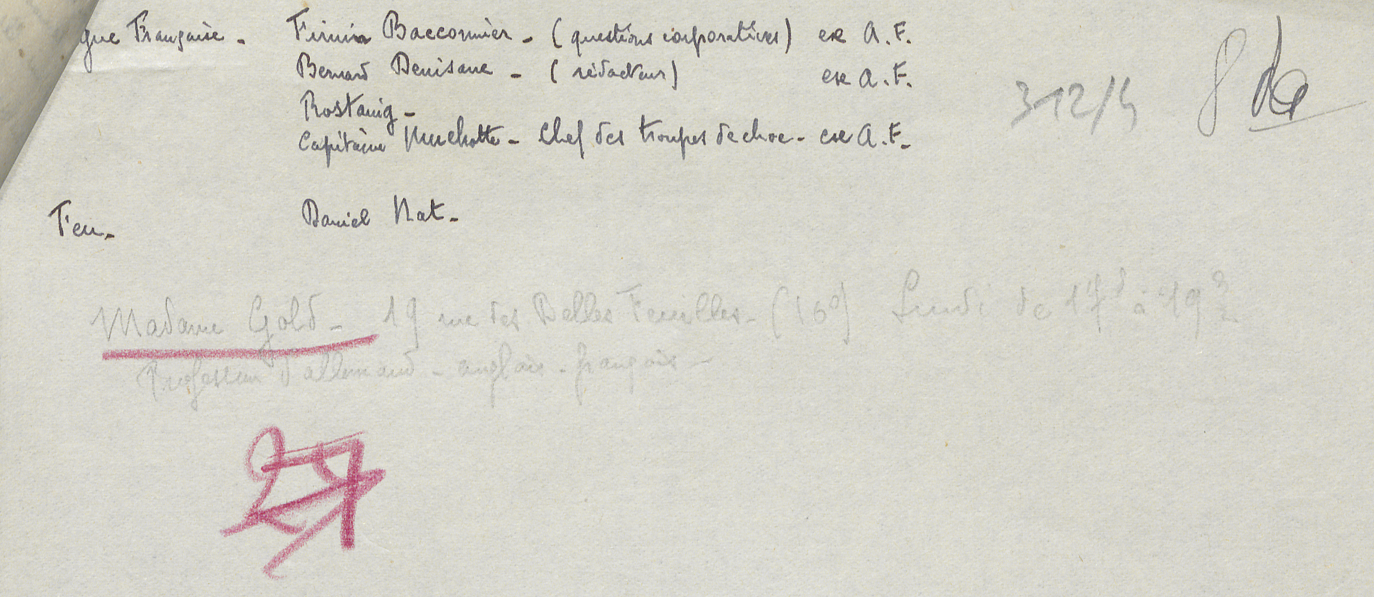 gue Française - Firmin Bacconnier - (questions corporatives) ex A.F.
Bernard Denisane - (rédacteur) ex A.F.
Rostanig -
Capitaine Muchotte - Chef des troupes de choc - ex A.F.
312/4
Feu - Daniel Nat -
Madame Gold - 19 rue des Belles Feuilles - (16e) Lundi de 17h à 19h
Professeur d'allemand - anglais - français -
27